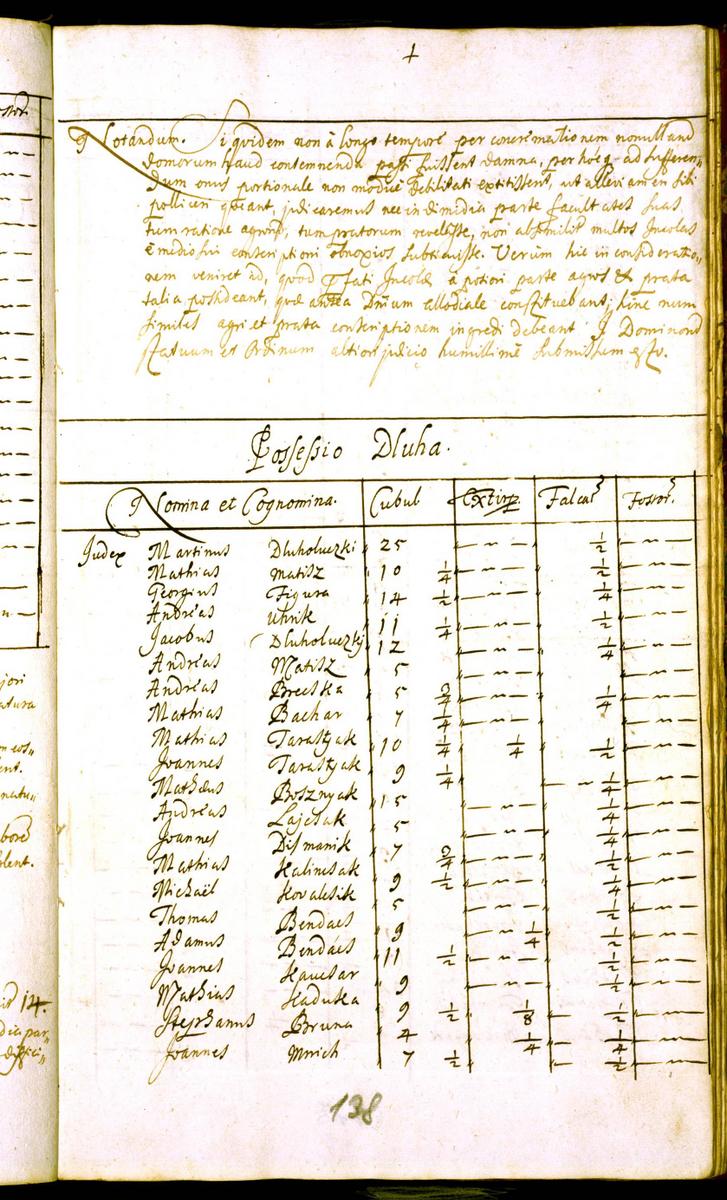 Notandum. Siquidem non à longo tempore per concremationem nonulland
domorum haud contemnenda passi fuissent damna, per hocq. ad sufferen„
dum onus portionale non modicè debilitati extitissent, ut alleviamen sibi
polliceri queant, judicaremus nec in dimidia parte facultates suas
tum ratione agror, tum pratorum revelasse, non absimilit multos Incolas
è medio sui conscriptioni obnoxios subticuisse. Verùm hic in consideratio„
nem veniret id, quod fati Incolæ à potiori parte agros & prata
talia possideant, quæ antea Dnium allodiale constituebant; hinc num
similes agri et prata conscriptionem ingredi debeant Dominond
Statuum et Ordinum altiori judicio humillimè submissum esto.
Possessio Dluha.
Nomina et Cognomina. Cubul Extirp. Falcat Fossor.
Judex Martinus Dluholuczki 25 1/2
Mathias Matisz 10 1/4 1/2
Georgius Figura 14 1/2 1/4
Andreas Uhrik 11 1/4 1/2
Jacobus Dluholuczky 12 1/4
Andreas Matisz 5
Andreas Brecska 5 3/4 1/4
Mathias Bachar 7 1/4
Mathias Tarastyak 10 1/4 1/4 1/2
Joannes Tarastyak 9 1/4
Mathæus Bosznyak 15 1/4
Andreas Lajcsak 5 1/4
Joannes Dismanik 7 3/4 1/4
Mathias Kalincsak 9 1/2 1/2
Michaël Kovalcsik 5 1/4
Thomas Bendaes 9 1/4 1/2
Adamus Bendaes 11 1/2 1/2
Joannes Kavcsar 9 1/2
Mathias Kadutka 9 1/2 1/8 1/2
Stephanus Bruna 4 1/4 1/4
Joannes Mrich 7 1/2 1/2
138